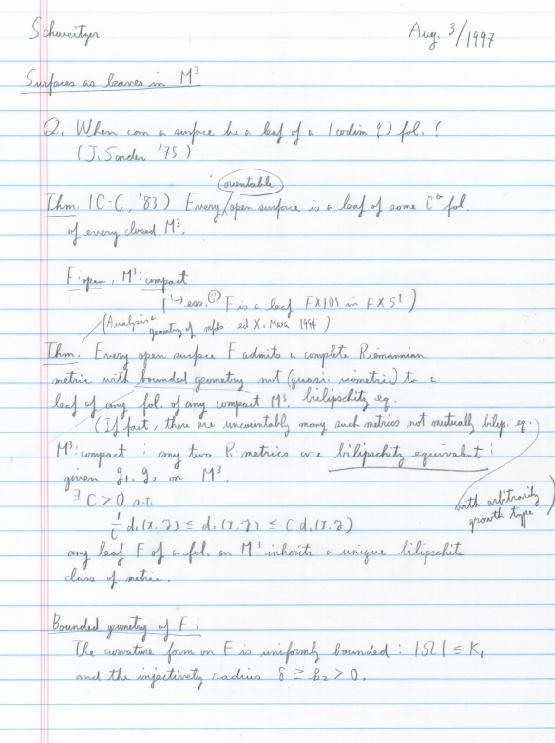 Schweitzer Aug. 3/1997
Surfaces as leaves in M³
Q. When can a surface be a leaf of a (codim q) fol.?
(J. Sondow '75)
orientable
Thm. (C-C, '83) Every open surface is a leaf of some C^∞ fol.
of every closed M³.
F: open, M³: compact
(↳ ess. ☺ F is a leaf F×{0} in F×S¹)
(Analysis & geometry of mfds. ed X. 1994)
Thm. Every open surface F admits a complete Riemannian
metric with bounded geometry not (quasi isometric) to a
leaf of any fol. of any compact M³. bilipschitz eq.
(If fact, there are uncountably many such metrics not mutually bilip. eq.
with arbitrarily
growth type)
M³: compact; any two R. metrics are bilipschitz equivalent:
given g₁, g₂ on M³.
∃ C > 0 s.t.
1/C d₁(x, y) ≤ d₂(x, y) ≤ C d₁(x, y)
any leaf F of a fol. on M³ inherits a unique bilipschitz
class of metric.
Bounded geometry of F:
The curvature form on F is uniformly bounded: |Ω| ≤ K₁
and the injectivity radius δ ≥ k₂ > 0.